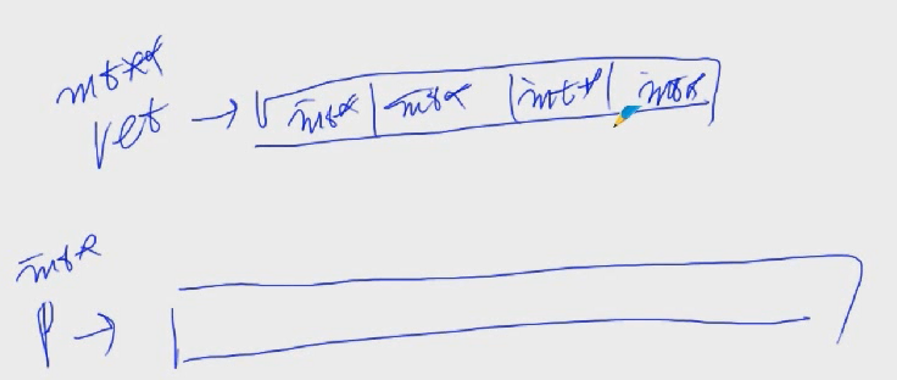 int**
ret → int* int* int* int*
int*
p →